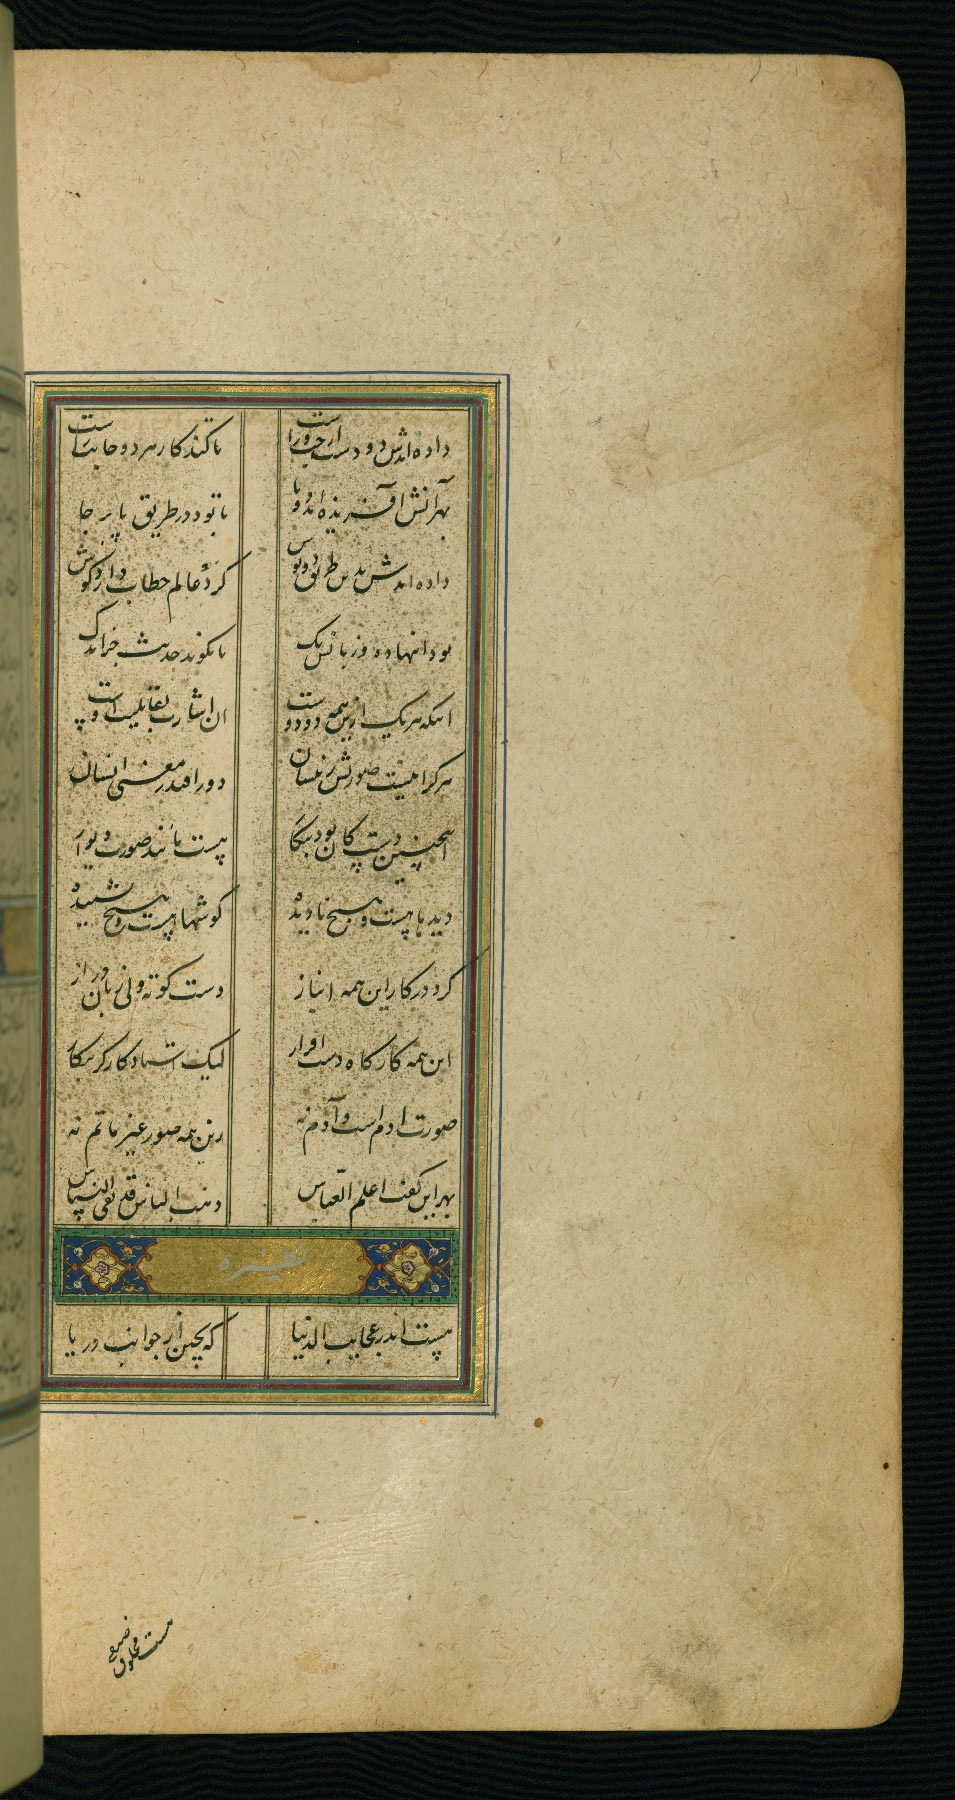 داده‌اندش دو دست از چپ و راست تا کند کار هر دو جانب راست
بهر آنش آفریده‌اند دو پا تا بود در طریق پا بر جا
داده‌اندش بدین طریق دو گوش کرد عالم خطاب دار
بود دانها ده و زبانش یک تا نگوید حدیث جز اندک
اینکه هر یک ازین همه دو دوست ان اشارت بقابلیت اوست
هر کرا هست صورتش زینسان دور افتد ز معنی انسان
همچنین دست کان بود بیکار هست مانند صورت دیوار
دیدها هست و هیچ نادیده گوشها هست و هیچ نشنیده
کرد در کار این همه انباز دست کوته ولی زبان دراز
این همه کارگاه دست افزار لیک استاد کارگر بیکار
صورت ادم است و آدم نه زین همه صور غیر ماتم نه
بهر این گفت اعلم الناس ذهب الناس قد بقی النسناس
نظیره
هست اندر عجایب الدنیا که بچین از جوانب دریا
هست مخلوق